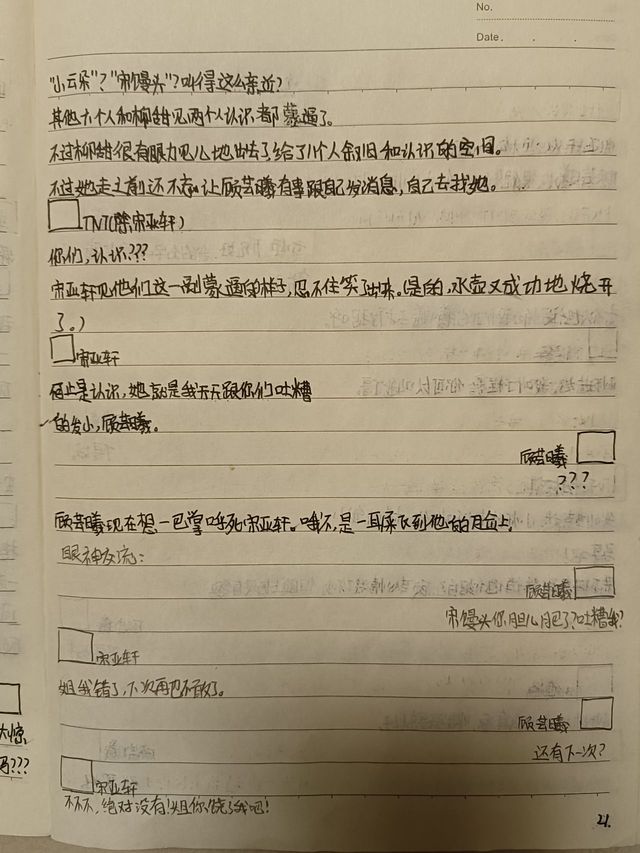 No.
Date . . .
"小云朵"？"宋馒头"？叫得这么亲近？
其他六个人和柳甜见两个人认识都蒙逼了。
不过柳甜很有眼力见儿地出去了给了八个人叙旧和认识的空间。
不过她走之前还不忘让顾芸曦有事跟自己发消息，自己去找她。
TNT(除宋亚轩)
你们，认识???
宋亚轩见他们这一副蒙逼的样子，忍不住笑了出来。(是的，水壶又成功地烧开
了。)
宋亚轩
何止是认识，她就是我天天跟你们吐槽
的发小，顾芸曦。
顾芸曦
???
顾芸曦现在想一巴掌呼死宋亚轩。哦不，是一耳屎飞到他的脸上。
眼神交流：
顾芸曦
宋馒头你胆儿肥了?吐槽我?
宋亚轩
姐我错了，下次再也不敢了。
顾芸曦
还有下一次?
宋亚轩
不不不，绝对没有!姐你饶了我吧!
大惊
吗???
21.